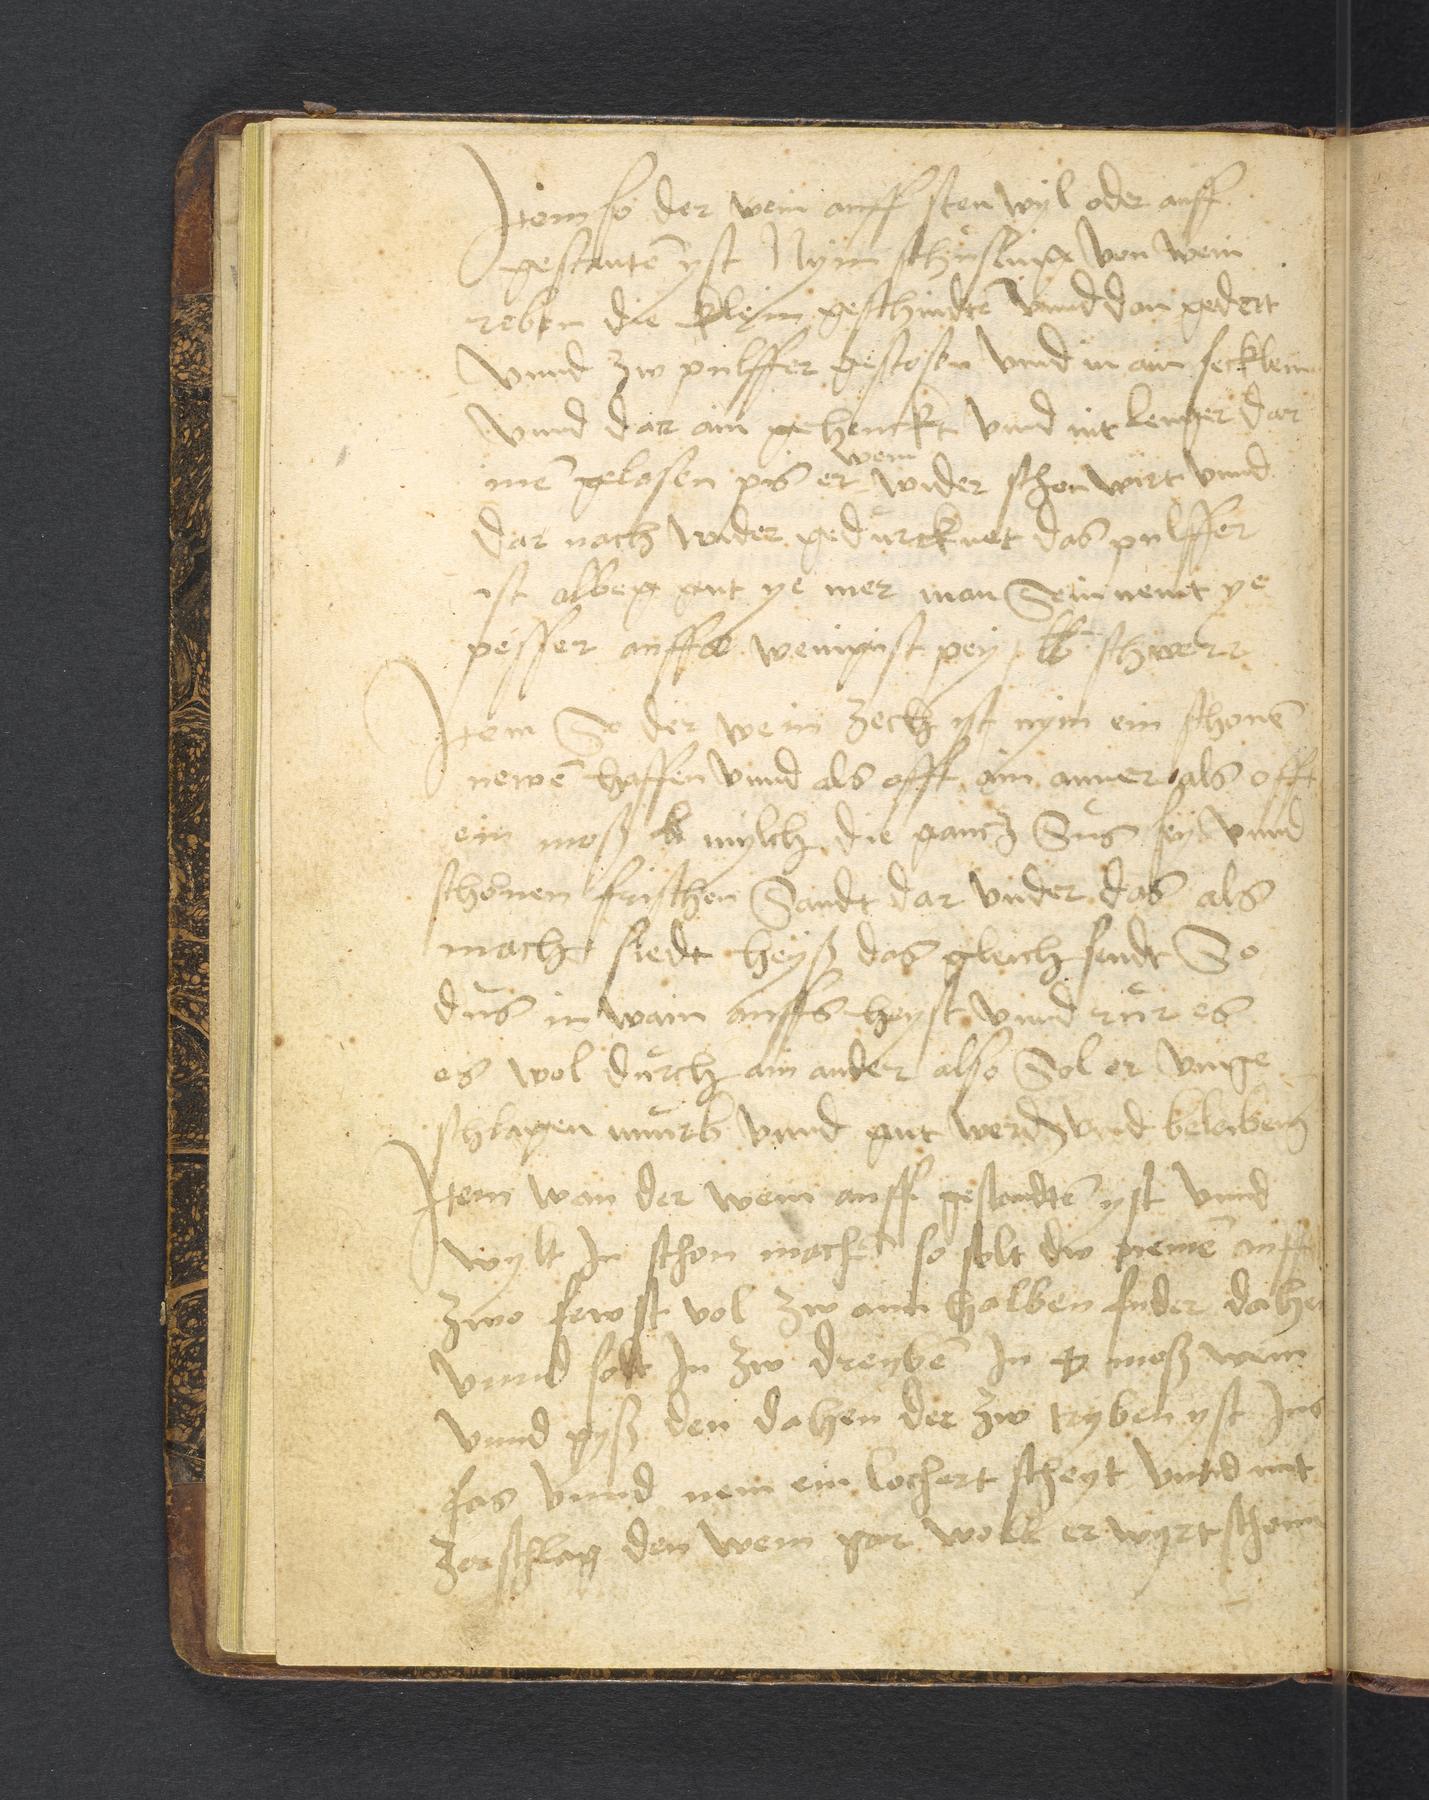 Item so der wein auff sten wyl oder auff
gestanten̄ yst Nym schüsling von wein
reben die klein geschindte vnnd dan gedert
vnnd zw pulffer gestosen vnnd in ain secklein
vnnd dar ain gehenckt vnnd nit lenger dar
inen̄ gelosen pis er wein wider schon wirt vnnd
dar nach wider gedürcknet das pulffer
ist albeg gut ye mer man Sein nemt ye
pesser auffs wenigist pey lb schwerr
Item So der wein zech ist nym ein schonen̄
newen̄ haffen vnnd als offt ain ainer als offt
ein moß mylch die gantz Süs sey vnnd
schönen frischen Sandt dar vnder das als
mach siedt heyß das gleich sindt So
düs in wain auffs heyst vnnd rür es
es wol dürch ain ander also Sol er vmge
schlagen mürb vnnd gut werdn vnd beleiben
Item wan der wein auff gestandten̄ yst vnnd
wylt In schon machen̄ so solt dw nemen̄ auff
zwo fewst vol zw ain halben fuder dahen
vnnd solt In zw dreyben̄ In moß wein
vnnd gyß den dahen der zw tryben yst Ins
fas vnnd nem ein lochert scheyt vnnd mit
zerschlag den wein gar woll er wyrt schonn